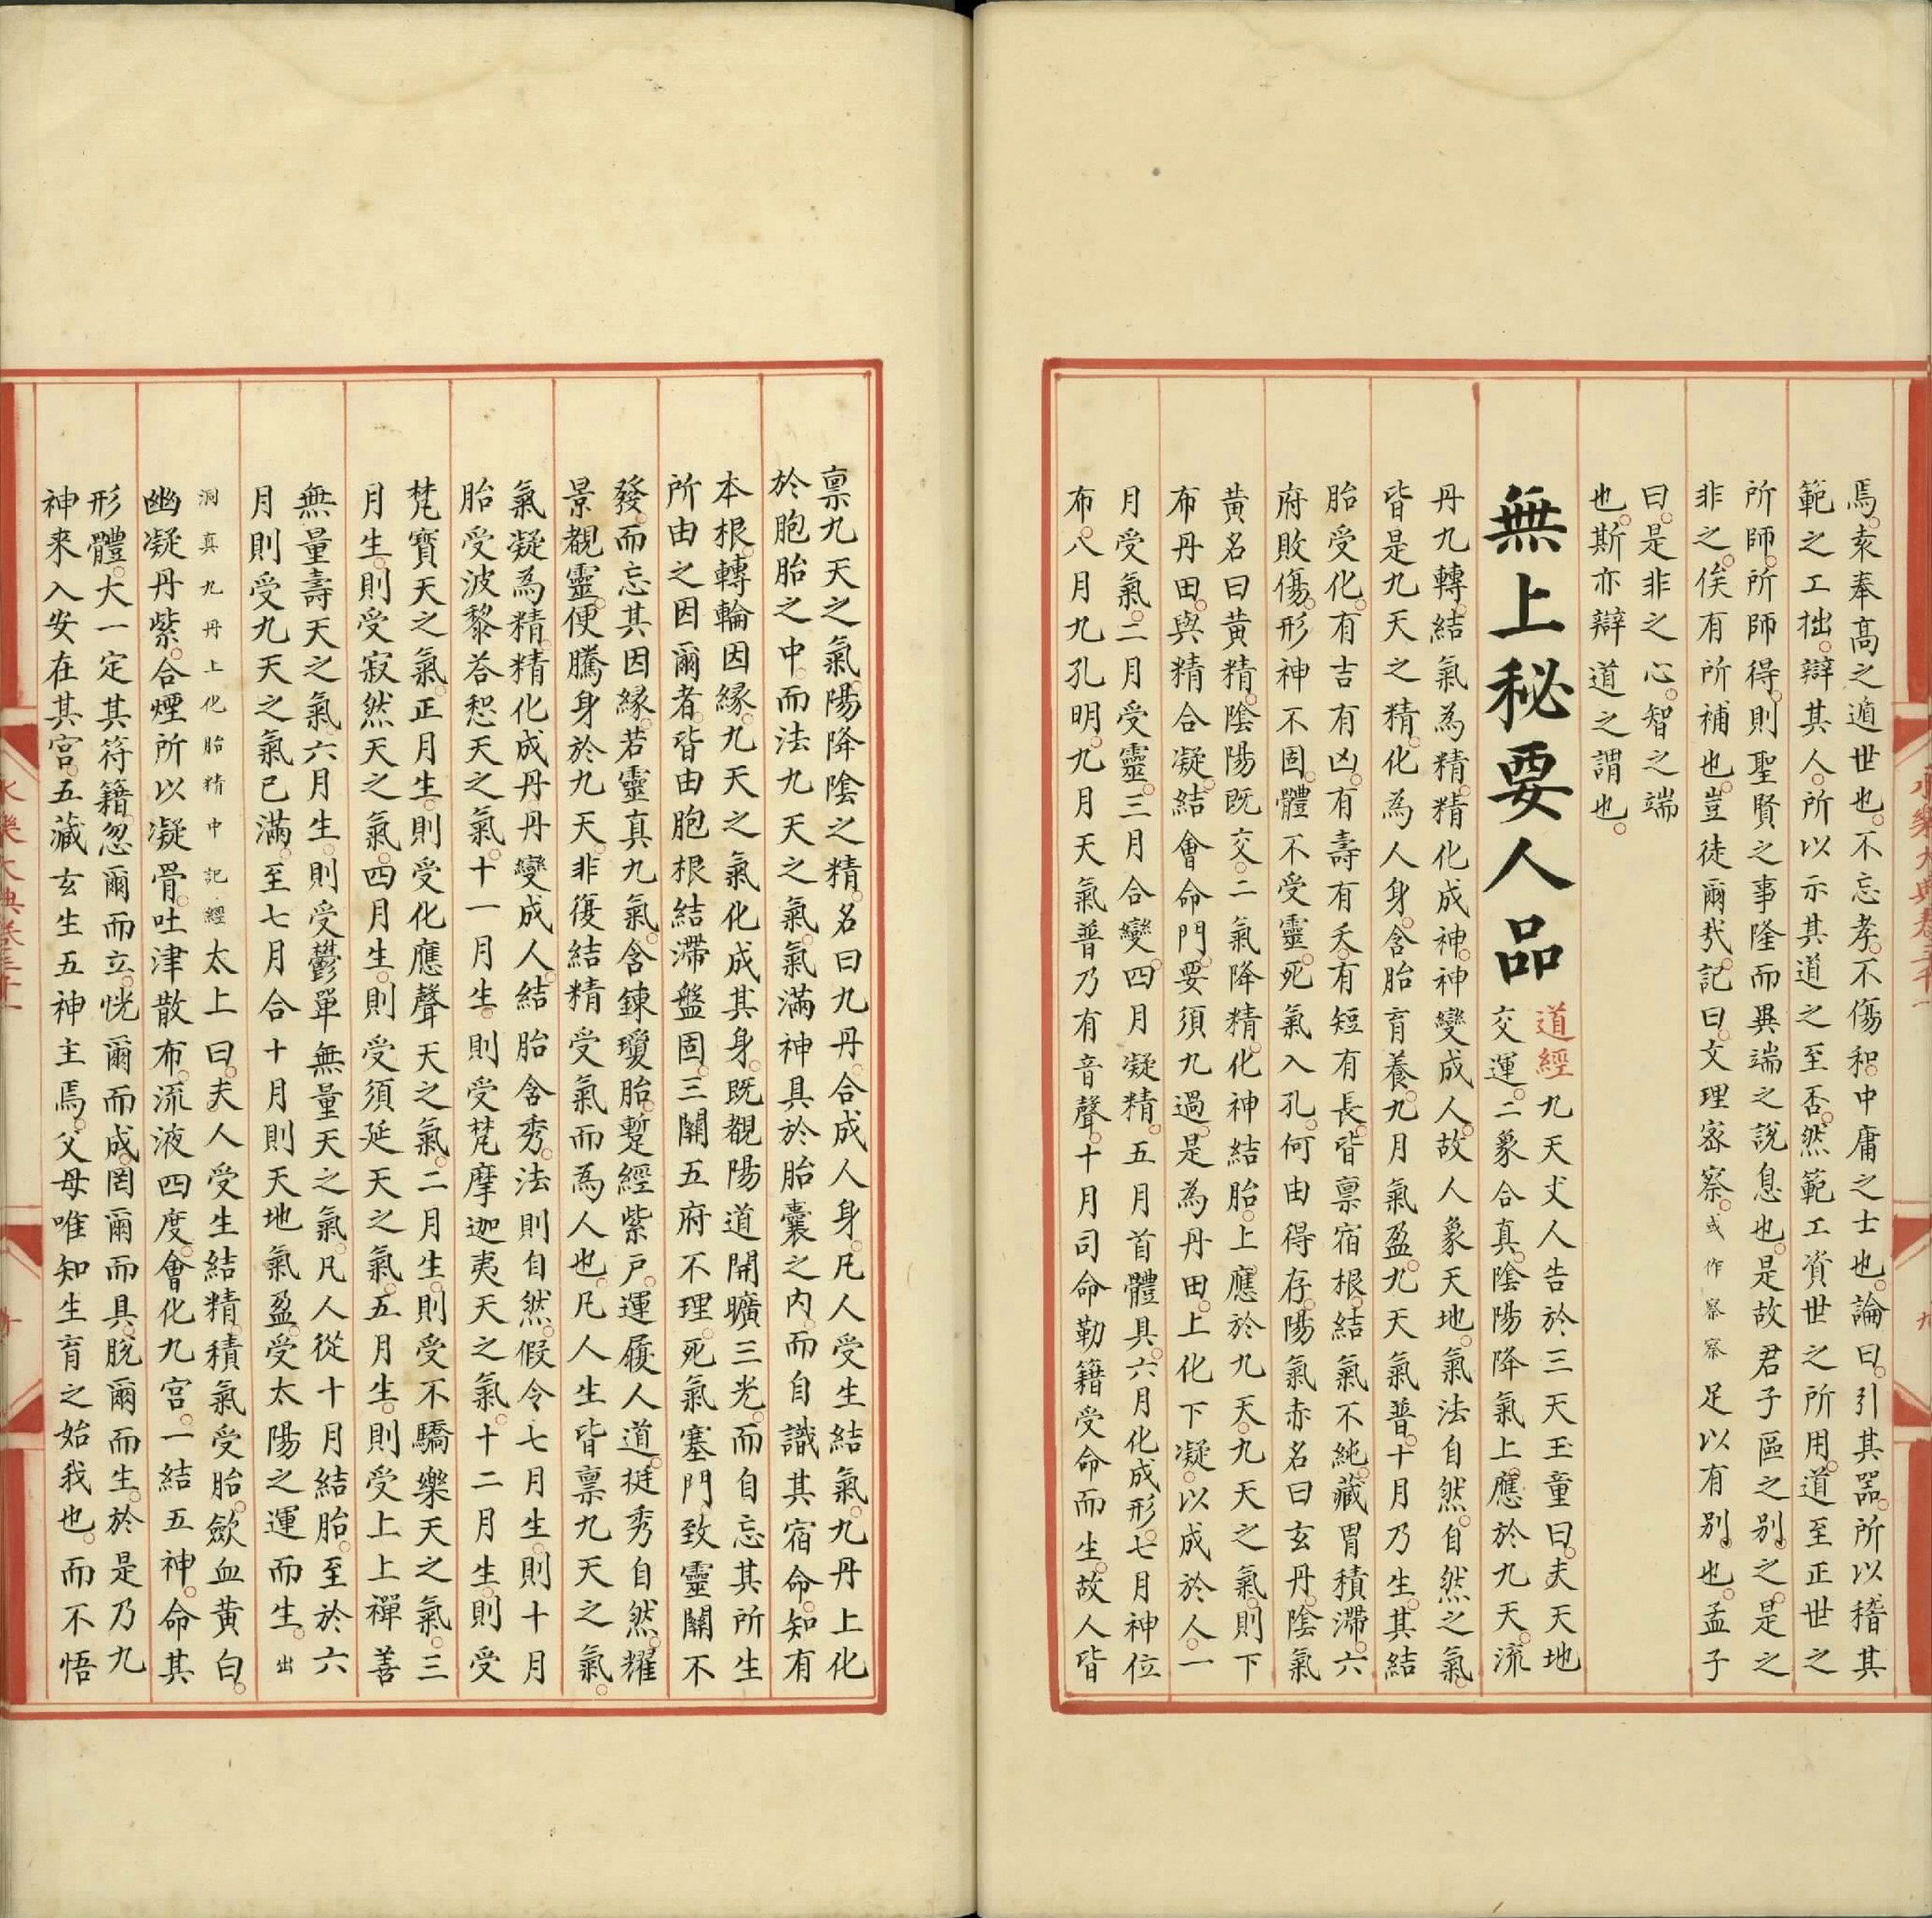 焉。索奉高之遁世也。不忘孝。不傷和。中庸之士也。論曰。引其器。所以稽其
範之工拙。辯其人。所以示其道之至否。然範工資世之所用。道至正世之
所師。所師師得。則聖賢之事隆而異端之說息也。是故君子區之別之。是之
非之。俟有所補也。豈徒爾哉。記曰。文理宻察。或作察察足以有別也。孟子
曰。是非之心。智之端
也。斯亦辯道之謂也。
無上秘要人品
道經九天丈人告於三天玉童曰。夫天地
交運。二象合真。陰陽降氣。上應於九天。流
丹九轉。結氣為精。精化成神。神變成人。故人象天地。氣法自然。自然之氣。
皆是九天之精。化為人身。含胎育養。九月氣盈。九天氣普。十月乃生。其結
胎受化。有吉有凶。有壽有夭。有短有長。皆稟宿根。結氣不純。藏胃積滯。六
府敗傷。形神不固。體不受靈。死氣入孔。何由得存。陽氣赤名曰玄丹。陰氣
黃名曰黃精。陰陽既交。二氣降精。化神結胎。上應於九天。九天之氣。則下
布丹田。與精合凝。結會命門。要須九過。是為丹田。上化下凝。以成於人。一
月受氣。二月受靈。三月合變。四月凝精。五月首體具。六月化成形。七月神位
布。八月九孔明。九月天氣普乃有音聲。十月司命勒籍受命而生。故人皆
稟九天之氣。陽降陰之精。名曰九丹。合成人身。凡人受生結氣。九丹上化
於胞胎之中。而法九天之氣。氣滿神具於胎囊之内。而自識其宿命。知有
本根。轉輪因緣。九天之氣化成其身。既覩陽道開曠三光。而自忘其所生
所由之因爾者。皆由胞根結滯盤固。三關五府不理。死氣塞門。致靈關不
發。而忘其因緣。若靈真九氣。含鍊瓊胎。蹔經紫戶。運履人道。挺秀自然。耀
景覩靈。便騰身於九天。非復結精受氣而為人也。凡人生皆稟九天之氣。
氣凝為精。精化成丹。丹變成人。結胎含秀。法則自然。假令七月生。則十月
胎受波黎荅惒天之氣。十一月生。則受梵摩迦夷天之氣。十二月生。則受
梵寶天之氣。正月生。則受化應聲天之氣。二月生。則受不驕樂天之氣。三
月生。則受寂然天之氣。四月生。則受須延天之氣。五月生。則受上上禪善
無量壽天之氣。六月生。則受鬱單無量天之氣。凡人從十月結胎。至於六
月則受九天之氣已滿。至七月合十月則天地氣盈。受太陽之運而生。出
洞真九丹上化胎精中記經太上曰。夫人受生結精。積氣受胎。歛血黃白。
幽凝丹紫。合煙所以凝骨。吐津散布。流液四度。會化九宮。一結五神。命其
形體。大一定其符籍。忽爾而立。恍爾而成。罔爾而具。脫爾而生。於是乃九
神來入安在其宮。五藏玄生五神主焉。父母唯知生育之始我也。而不悟